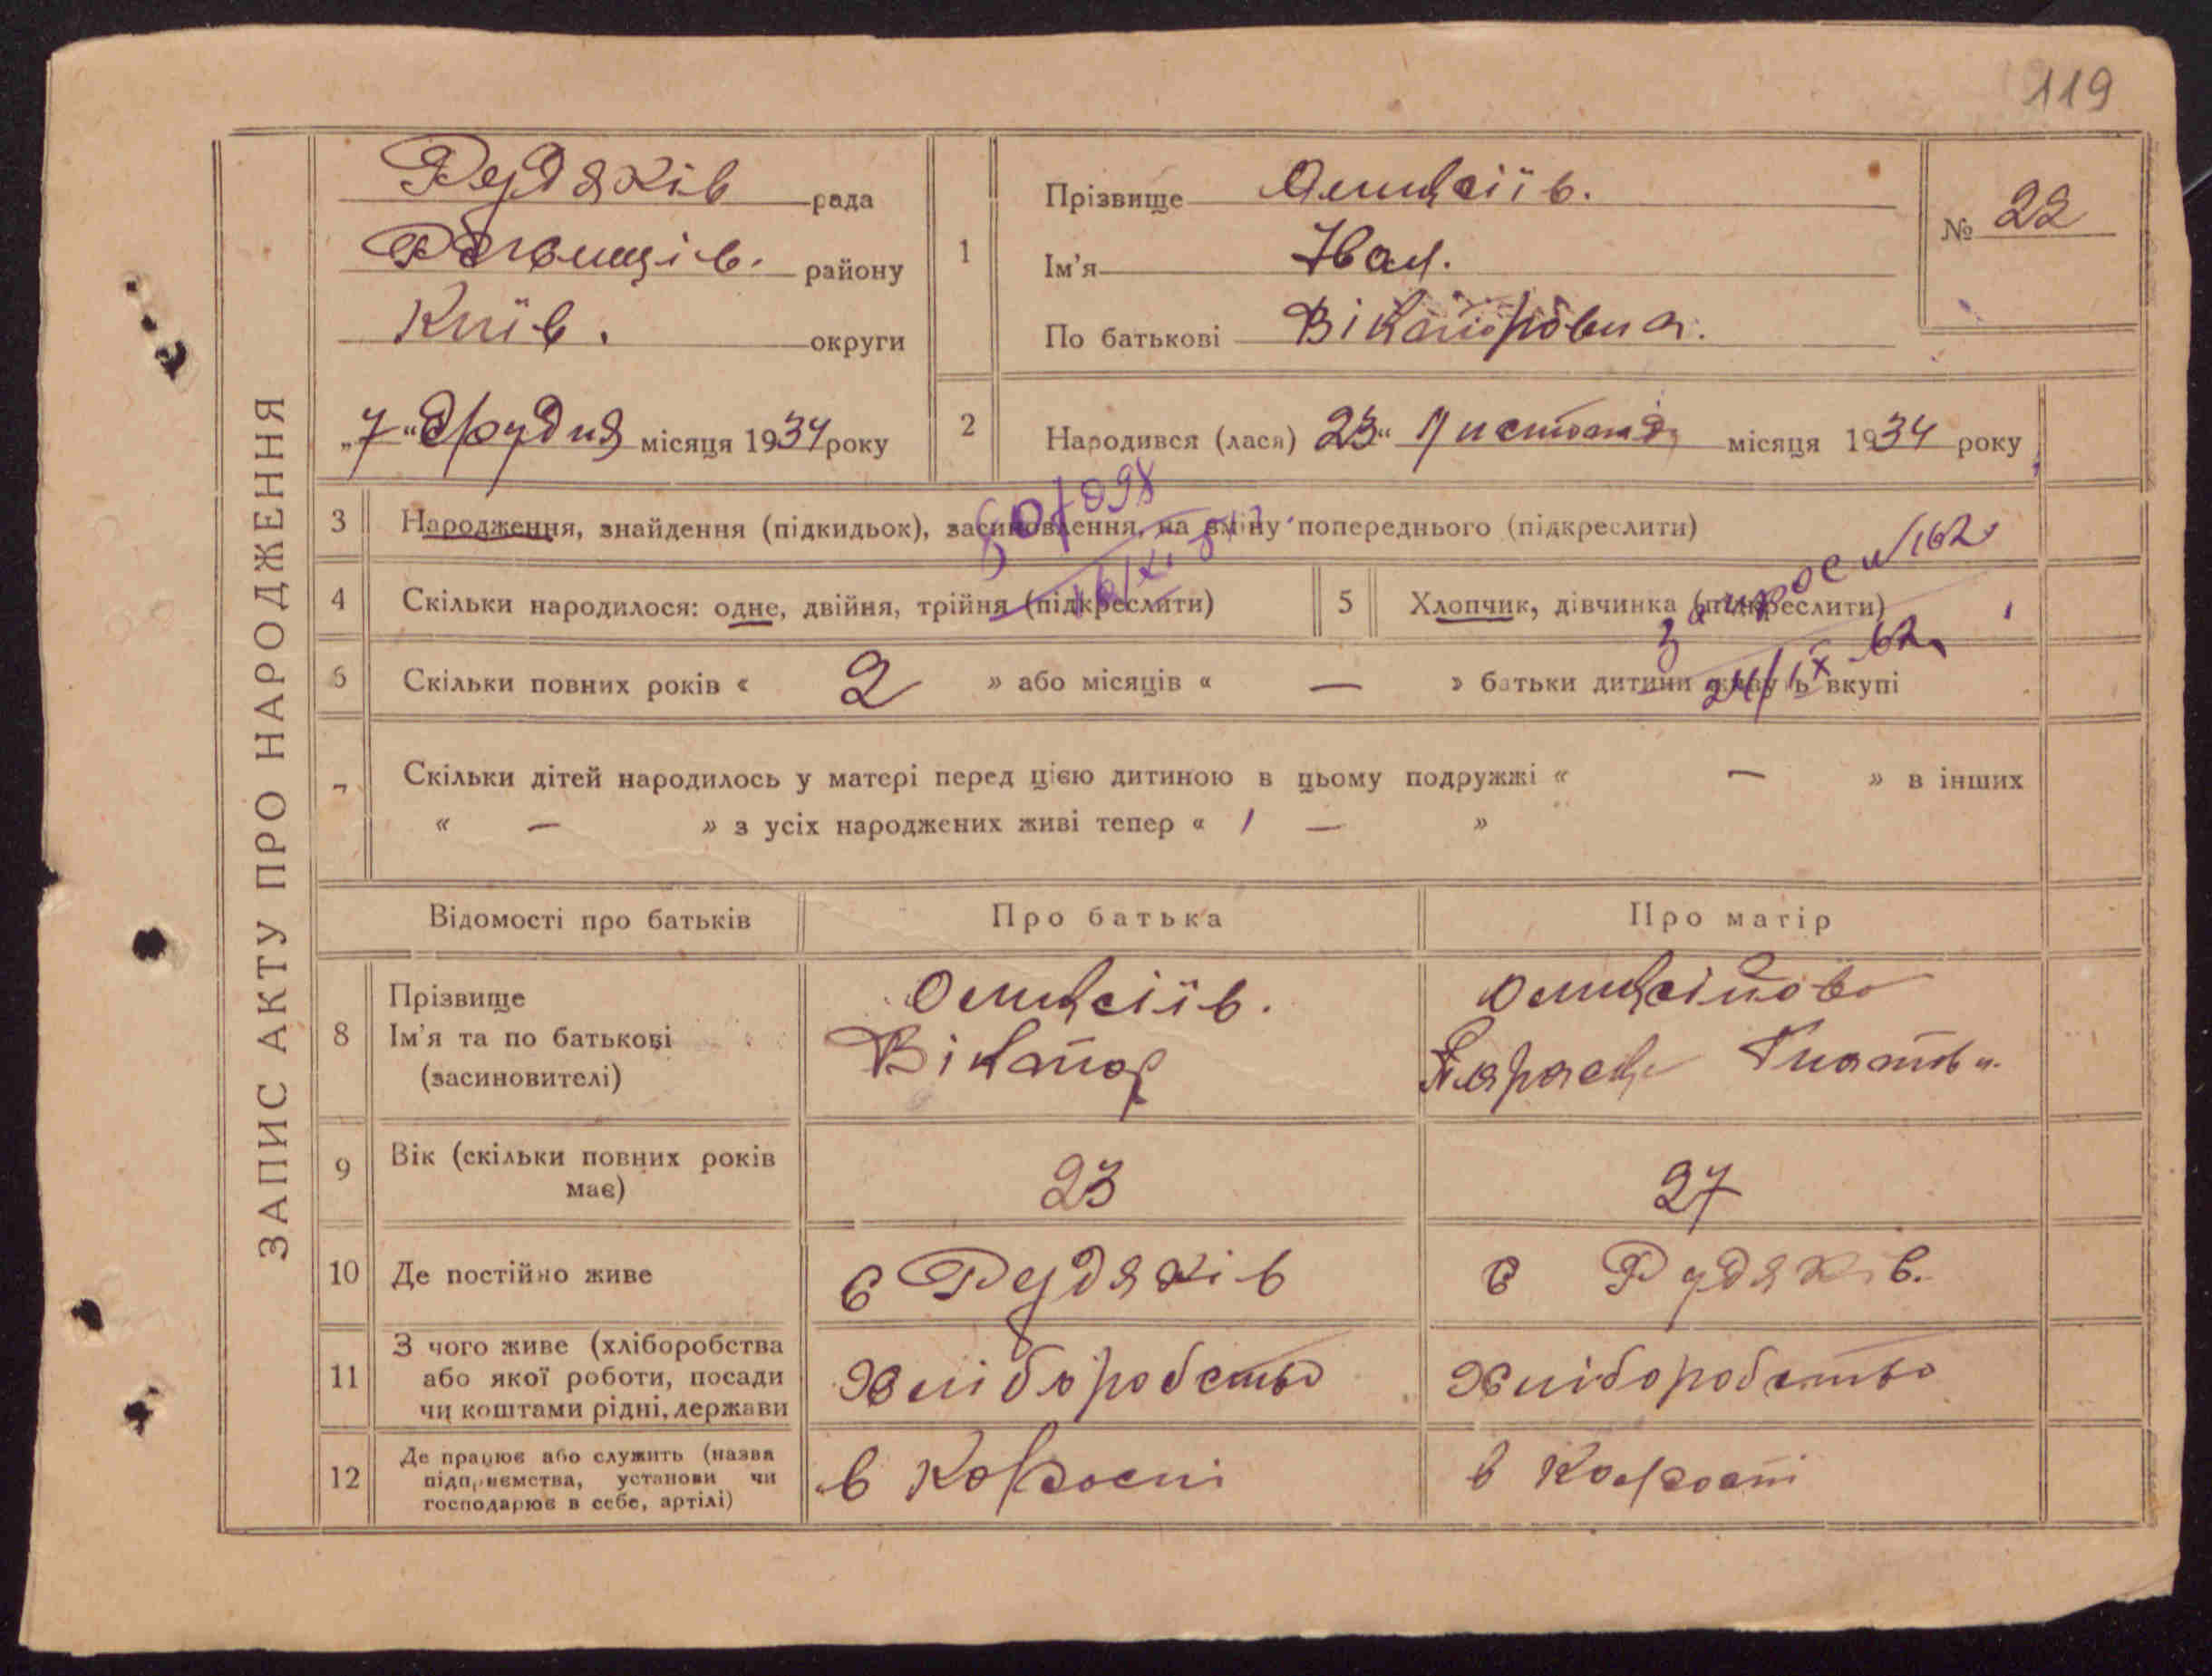 119
ЗАПИС АКТУ ПРО НАРОДЖЕННЯ
Рудяків рада
району
Київ. округи
„7“ Грудня місяця 1934 року
1
Прізвище Олексіїв.
Ім'я Іван.
По батькові Вікторович.
№ 22
2
Народився (лася) 23“ Листопада місяця 1934 року
3 Народження, знайдення (підкидьок), засиновлення, на зміну попереднього (підкреслити)
4 Скільки народилося: одне, двійня, трійня (підкреслити)
5 Хлопчик, дівчинка (підкреслити)
запрос №162
24/IX 62
6 Скільки повних років « 2 » або місяців « — » батьки дитини живуть вкупі
7 Скільки дітей народилось у матері перед цією дитиною в цьому подружжі « — » в інших
« — » з усіх народжених живі тепер « 1 — »
Відомості про батьків
Про батька
Про матір
8
Прізвище
Ім'я та по батькові
(засиновителі)
Олексіїв.
Віктор
Олексійова
Параска Гнатов.
9
Вік (скільки повних років
має)
23
27
10 Де постійно живе
с Рудяків
с Рудяків.
11
З чого живе (хліборобства
або якої роботи, посади
чи коштами рідні, держави
Хліборобство
Хліборобство
12
Де працює або служить (назва
підприємства, установи чи
господарює в себе, артілі)
в Колгоспі
в Колгоспі